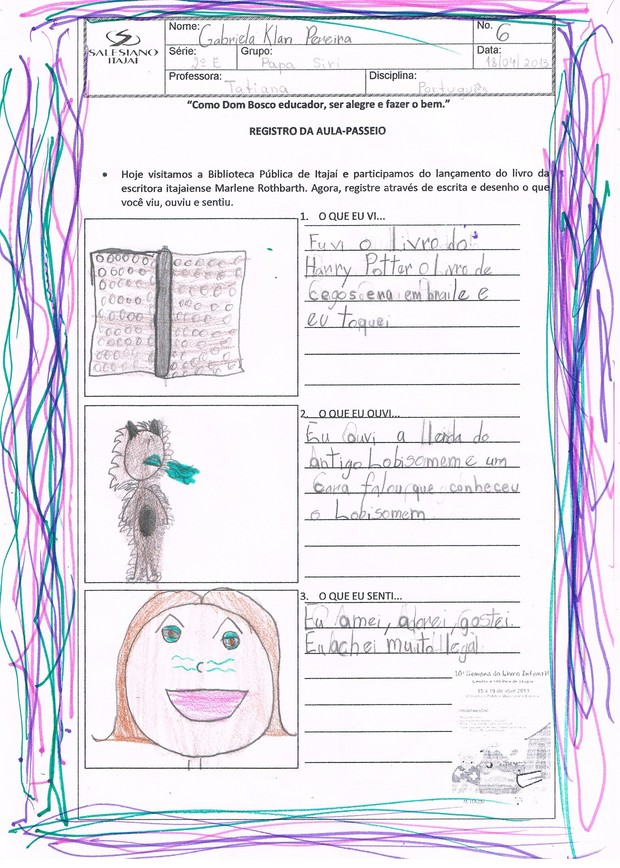 SALESIANO
ITAJAÍ
Nome: Gabriela Klan Pereira
No. 6
Série: 2º E
Grupo: Papa Siri
Data: 18/04/2013
Professora: Tatiana
Disciplina: Português
"Como Dom Bosco educador, ser alegre e fazer o bem."
REGISTRO DA AULA-PASSEIO
• Hoje visitamos a Biblioteca Pública de Itajaí e participamos do lançamento do livro da
escritora itajaiense Marlene Rothbarth. Agora, registre através de escrita e desenho o que
você viu, ouviu e sentiu.
1. O QUE EU VI...
Eu vi o livro do
Harry Potter o livro de
cegos era em braile e
eu toquei
2. O QUE EU OUVI...
Eu ouvi a llenda do
antigo Lobisomem e um
cara falou que conheceu
o Lobisomem
3. O QUE EU SENTI...
Eu amei, adorei, gostei.
Eu achei muito legal
10ª Semana do Livro Infantil
15 a 19 de abril 2013